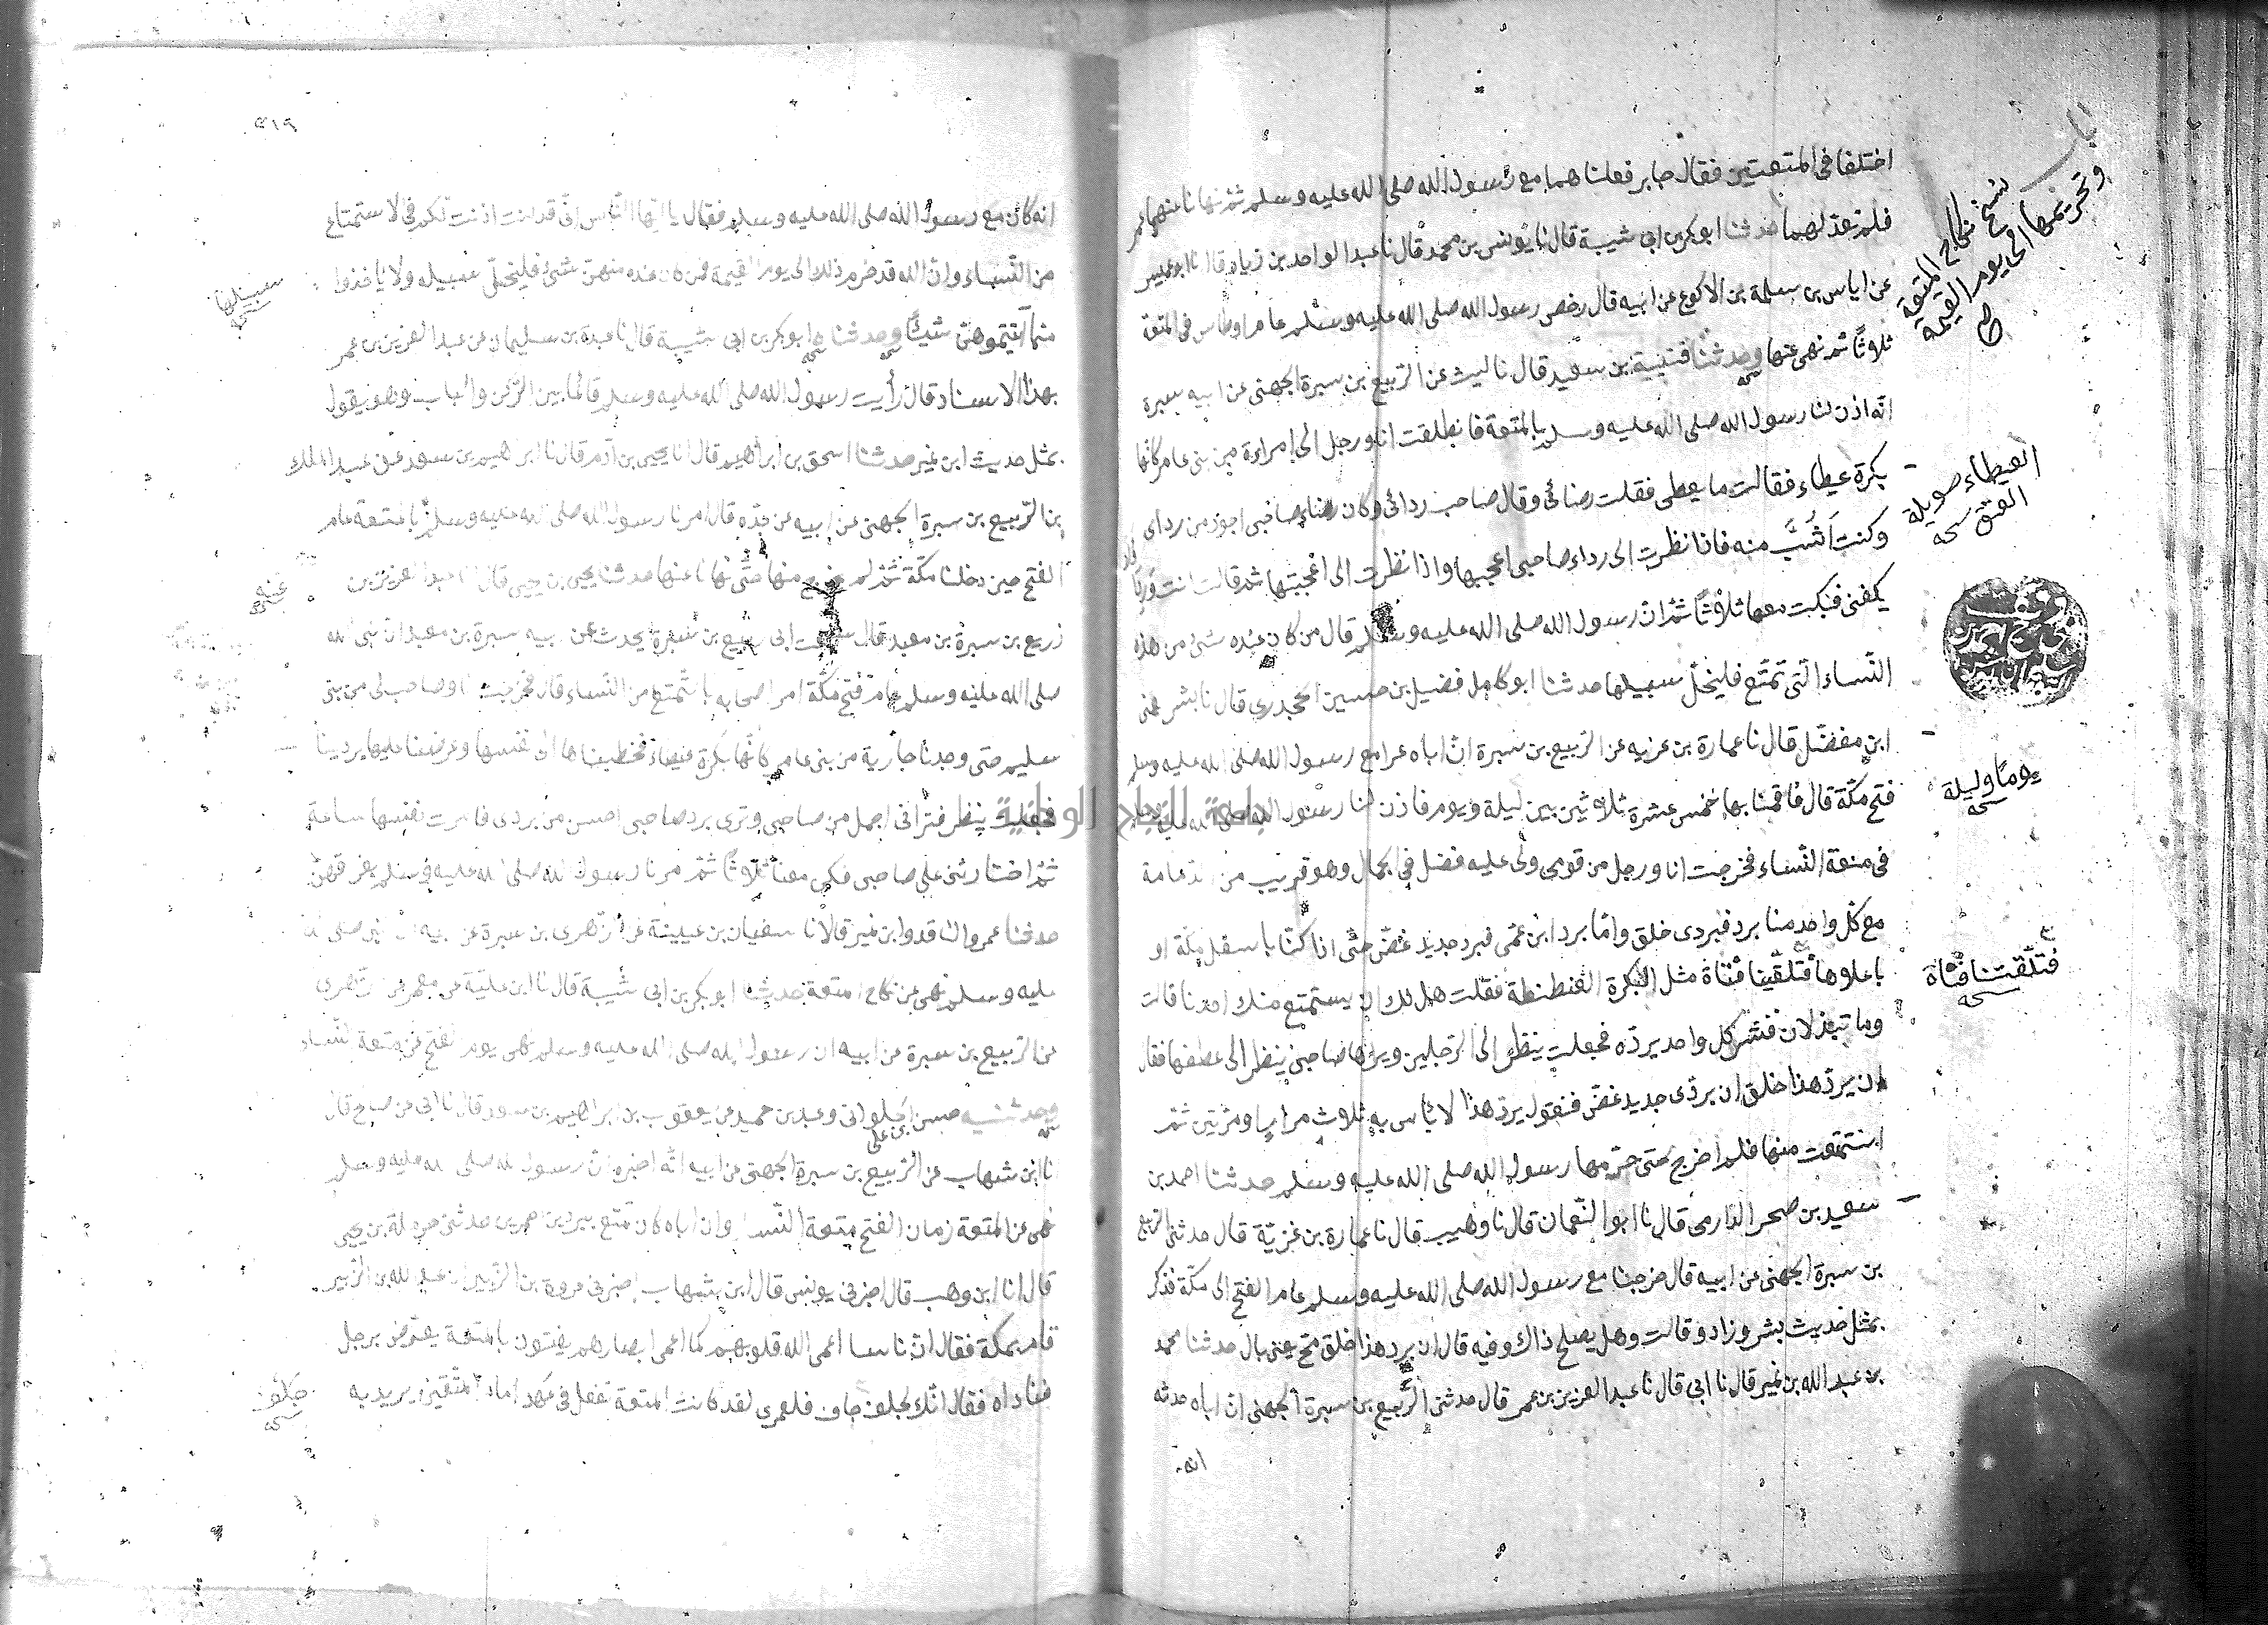 اختلفا في المتعتين فقال جابر فعلناهما مع رسول الله صلى الله عليه وسلم ثم نهانا عنهما عمر
فلم نعد لهما حدثنا ابو بكر بن ابي شيبة قال نا يونس بن محمد قال نا عبد الواحد بن زياد قال نا ابو عميس
عن اياس بن سلمة بن الاكوع عن ابيه قال رخص رسول الله صلى الله عليه وسلم عام اوطاس في المتعة
ثلاثًا ثم نهى عنها وحدثنا قتيبة بن سعيد قال نا ليث عن الربيع بن سبرة الجهني عن ابيه سبرة
انه اذن لنا رسول الله صلى الله عليه وسلم بالمتعة فانطلقت انا ورجل الى امراءة من بني عامر كانها
بكرة عيطاء فقالت ما يعطي فقلت ردائي وقال صاحبي ردائي وكان رداء صاحبي اجود من رداى
وكنت اَشَبَّ منه فاذا نظرت الى رداء صاحبي اعجبها واذا نظرت الى اعجبتها ثم قالت انت ورداك
يكفني فمكثت معها ثلاثًا ثم ان رسول الله صلى الله عليه وسلم قال من كان عنده شئ من هذه
النساء التي تمتع فليخل سبيلها حدثنا ابو كامل فضيل بن حسين الجحدري قال نا بشر يعني
ابن مفضل قال نا عمارة بن غزيه عن الربيع بن سبرة ان اباه غزا مع رسول الله صلى الله عليه وسلم
فتح مكة قال فاقمنا بها خمس عشرة ثلاثين بين ليلة ويوم فاذن لنا رسول الله صلى الله عليه وسلم
في متعة النساء فخرجت انا ورجل من قومي ولي عليه فضل في الجمال وهو قريب من الدمامة
مع كل واحد منا برد فبردي خلق واما برد ابن عمي فبرد جديد غض حتى اذا كنا باسفل مكة او
باعلاها فتلقينا فتاة مثل البكرة العنطنطة فقلت هل لك ان يستمتع منك احدنا قالت
وما تبذلان فنشر كل واحد برده فجعلت ينظر الى الرجلين ويراها صاحبي ينظر الى عطفها فقال
ان برد هذا خلق ان بردى جديد غض فتقول برد هذا لا باس به ثلاث مرار او مرتين ثم
استمتعت منها فلم اخرج حتى حرمها رسول الله صلى الله عليه وسلم حدثنا احمد بن
سعيد بن صخر الدارمي قال نا ابو النعمان قال نا وهيب قال نا عمارة بن غزيّة قال حدثني الربيع
بن سبرة الجهني عن ابيه قال خرجنا مع رسول الله صلى الله عليه وسلم عام الفتح الى مكة فذكر
بمثل حديث بشر وزاد وقالت وهل يصلح ذاك وفيه قال ان برد هذا خلق مح يعني بال حدثنا محمد
بن عبد الله بن نمير قال نا ابي قال نا عبد العزيز بن عمر قال حدثني الربيع بن سبرة الجهني ان اباه حدثه
انه
باب
نسخ نكاح المتعة
وتحريمها الى يوم القيمة
العيطاء طويلة
العنق
يومًا وليلة
فتلقتنا فتاة
٣١٩
انه كان مع رسول الله صلى الله عليه وسلم فقال يا ايها الناس اني قد كنت اذنت لكم في الاستمتاع
من النساء وان الله قد حرم ذلك الى يوم القيمة فمن كان عنده منهن شئ فليخل سبيله ولا ياخذوا
مما آتيتموهن شيئًا وحدثناه ابو بكر بن ابي شيبة قال نا عبدة بن سليمان عن عبد العزيز بن عمر
بهذا الاسناد قال رأيت رسول الله صلى الله عليه وسلم قائما بين الركن والباب وهو يقول
بمثل حديث ابن نمير حدثنا اسحق بن ابراهيم قال انا يحيى بن آدم قال نا ابراهيم بن سعد عن عبد الملك
بن الربيع بن سبرة الجهني عن ابيه عن جده قال امرنا رسول الله صلى الله عليه وسلم بالمتعة عام
الفتح حين دخلنا مكة ثم لم نخرج منها حتى نهانا عنها حدثنا يحيى بن يحيى قال انا عبد العزيز بن
ربيع بن سبرة بن معبد قال سمعت ابي ربيع بن سبرة يحدث عن ابيه سبرة بن معبد ان نبي الله
صلى الله عليه وسلم عام فتح مكة امر اصحابه بالتمتع من النساء قال فخرجت انا وصاحب لي من بني
سليم حتى وجدنا جارية من بني عامر كانها بكرة عيطاء فخطبناها الى نفسها وعرضنا عليها بردينا
فجعلت ينظر فتراني اجمل من صاحبي وترى برد صاحبي احسن من بردى فامرت نفسها ساعة
ثم اختارتني على صاحبي فكن معنا ثلاثًا ثم امرنا رسول الله صلى الله عليه وسلم بفراقهن
حدثنا عمرو الناقد وابن نمير قالا نا سفيان بن عيينة عن الزهري عن الربيع بن سبرة عن ابيه ان النبي صلى الله
عليه وسلم نهى عن نكاح المتعة حدثنا ابو بكر بن ابي شيبة قال نا ابن علية عن معمر عن الزهري
عن الربيع بن سبرة عن ابيه ان رسول الله صلى الله عليه وسلم نهى يوم الفتح عن متعة النساء
وحدثنيه حسن الحلواني وعبد بن حميد عن يعقوب بن ابراهيم بن سعد قال نا ابي عن صالح قال
بن علي
نا ابن شهاب عن الربيع بن سبرة الجهني عن ابيه انه اخبره ان رسول الله صلى الله عليه وسلم
نهى عن المتعة زمان الفتح متعة النساء وان اباه كان تمتع ببردين احمرين حدثني حرملة بن يحيى
قال انا ابن وهب قال اخبرني يونس قال ابن شهاب اخبرني عروة بن الزبير ان عبد الله بن الزبير
قام بمكة فقال ان ناسا اعمى الله قلوبهم كما اعمى ابصارهم يفتون بالمتعة يعرض برجل
فناداه فقال انك لجلف جاف فلعمري لقد كانت المتعة تفعل في عهد امام المتقين يريد به
سبيلها
جامعة النجاح الوطنية